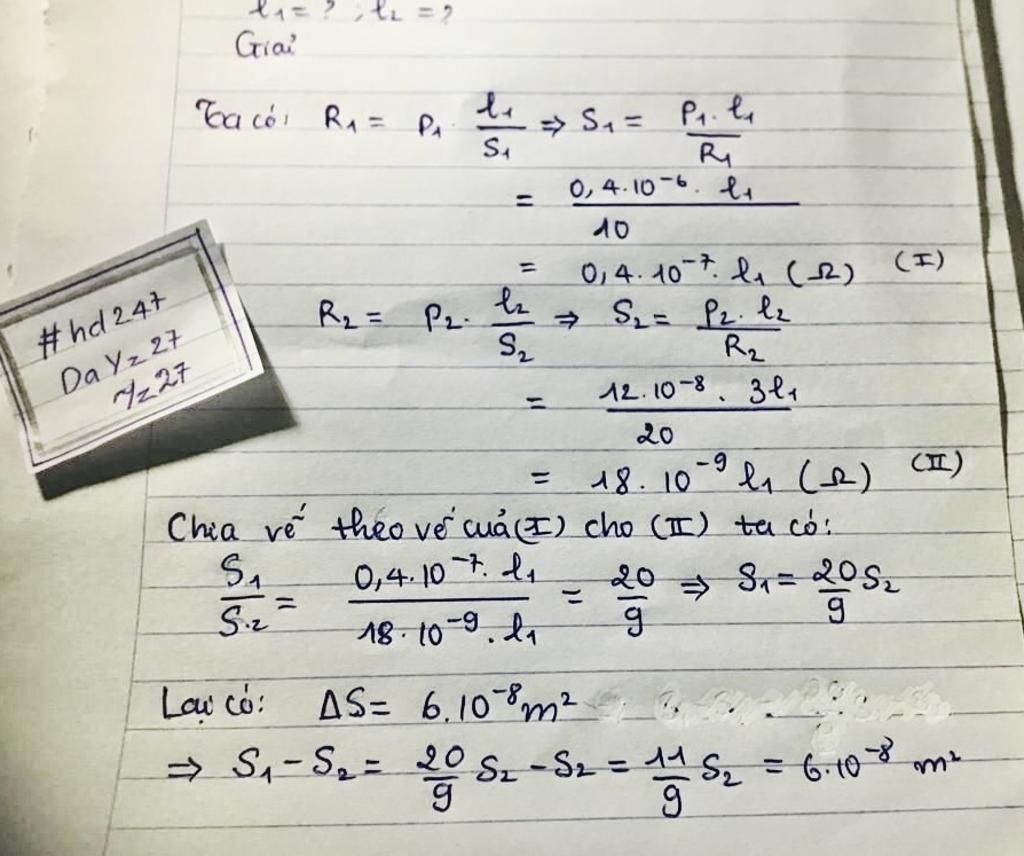 l1 = ? ; l2 = ?
Giải
Ta có: R1 = ρ1 . l1/S1 ⇒ S1 = ρ1 . l1/R1
= 0,4.10⁻⁶ . l1/10
= 0,4.10⁻⁷. l1 (Ω) (I)
R2 = ρ2. l2/S2 ⇒ S2 = ρ2 . l2/R2
= 12.10⁻⁸ . 3l1/20
= 18.10⁻⁹ l1 (Ω) (II)
Chia vế theo vế của (I) cho (II) ta có:
S1/S2 = 0,4.10⁻⁷. l1/18.10⁻⁹. l1 = 20/9 ⇒ S1 = 20/9 S2
Lại có: ΔS = 6.10⁻⁸ m²
⇒ S1 - S2 = 20/9 S2 - S2 = 11/9 S2 = 6.10⁻⁸ m²
#hd247
DaYz27